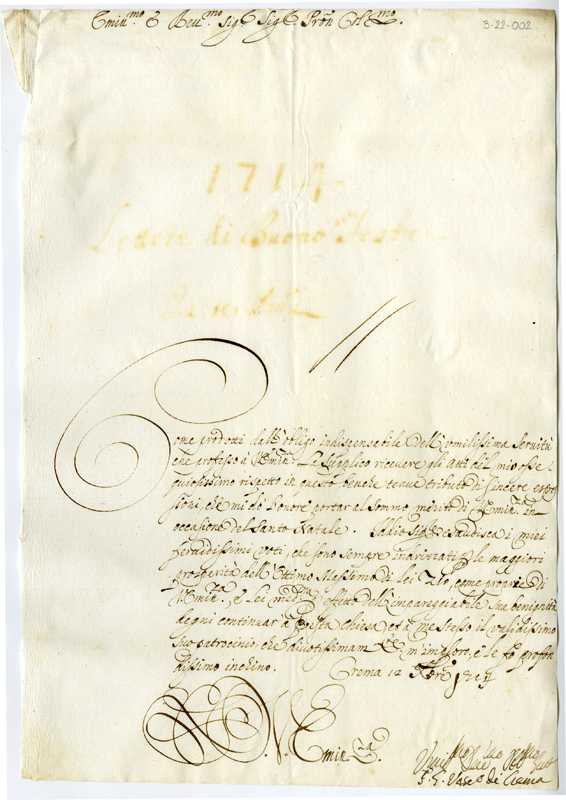 Emin.mo & Reu.mo Sig.r Sig.r Pron Col.mo.
3-22-002
1714
Lettere di Buone Feste
Come prodotti dall'obligo indispensabile dell'humilissima seruitù
che professo à V. Emin.za La supplico riceuere gli atti del mio osse-
quiosissimo rispetto in questo benche tenue tributo di sincere espres
sioni, che mi dò l'onore portar al sommo merito di V. Emin.za in
occasione del Santo Natale. Iddio Sig.re esaudisca i miei
feruidissimi voti, che sono sempre inuiati p le maggiori
prosperità dell'Ottimo Massimo di lei Zio, come proprie di
V. Emin.za, e Lei med.ma effetto dell'impareggiabile sua benignità
degni continuar à questa Chiesa et à me stesso il validissimo
suo patrocinio, che diuotissimam.te m'imploro, e le fò profon
dissimo inchino. Crema 12 Xbre 1714
D. V. Emin.za
F. F. Vesc.o di Crema